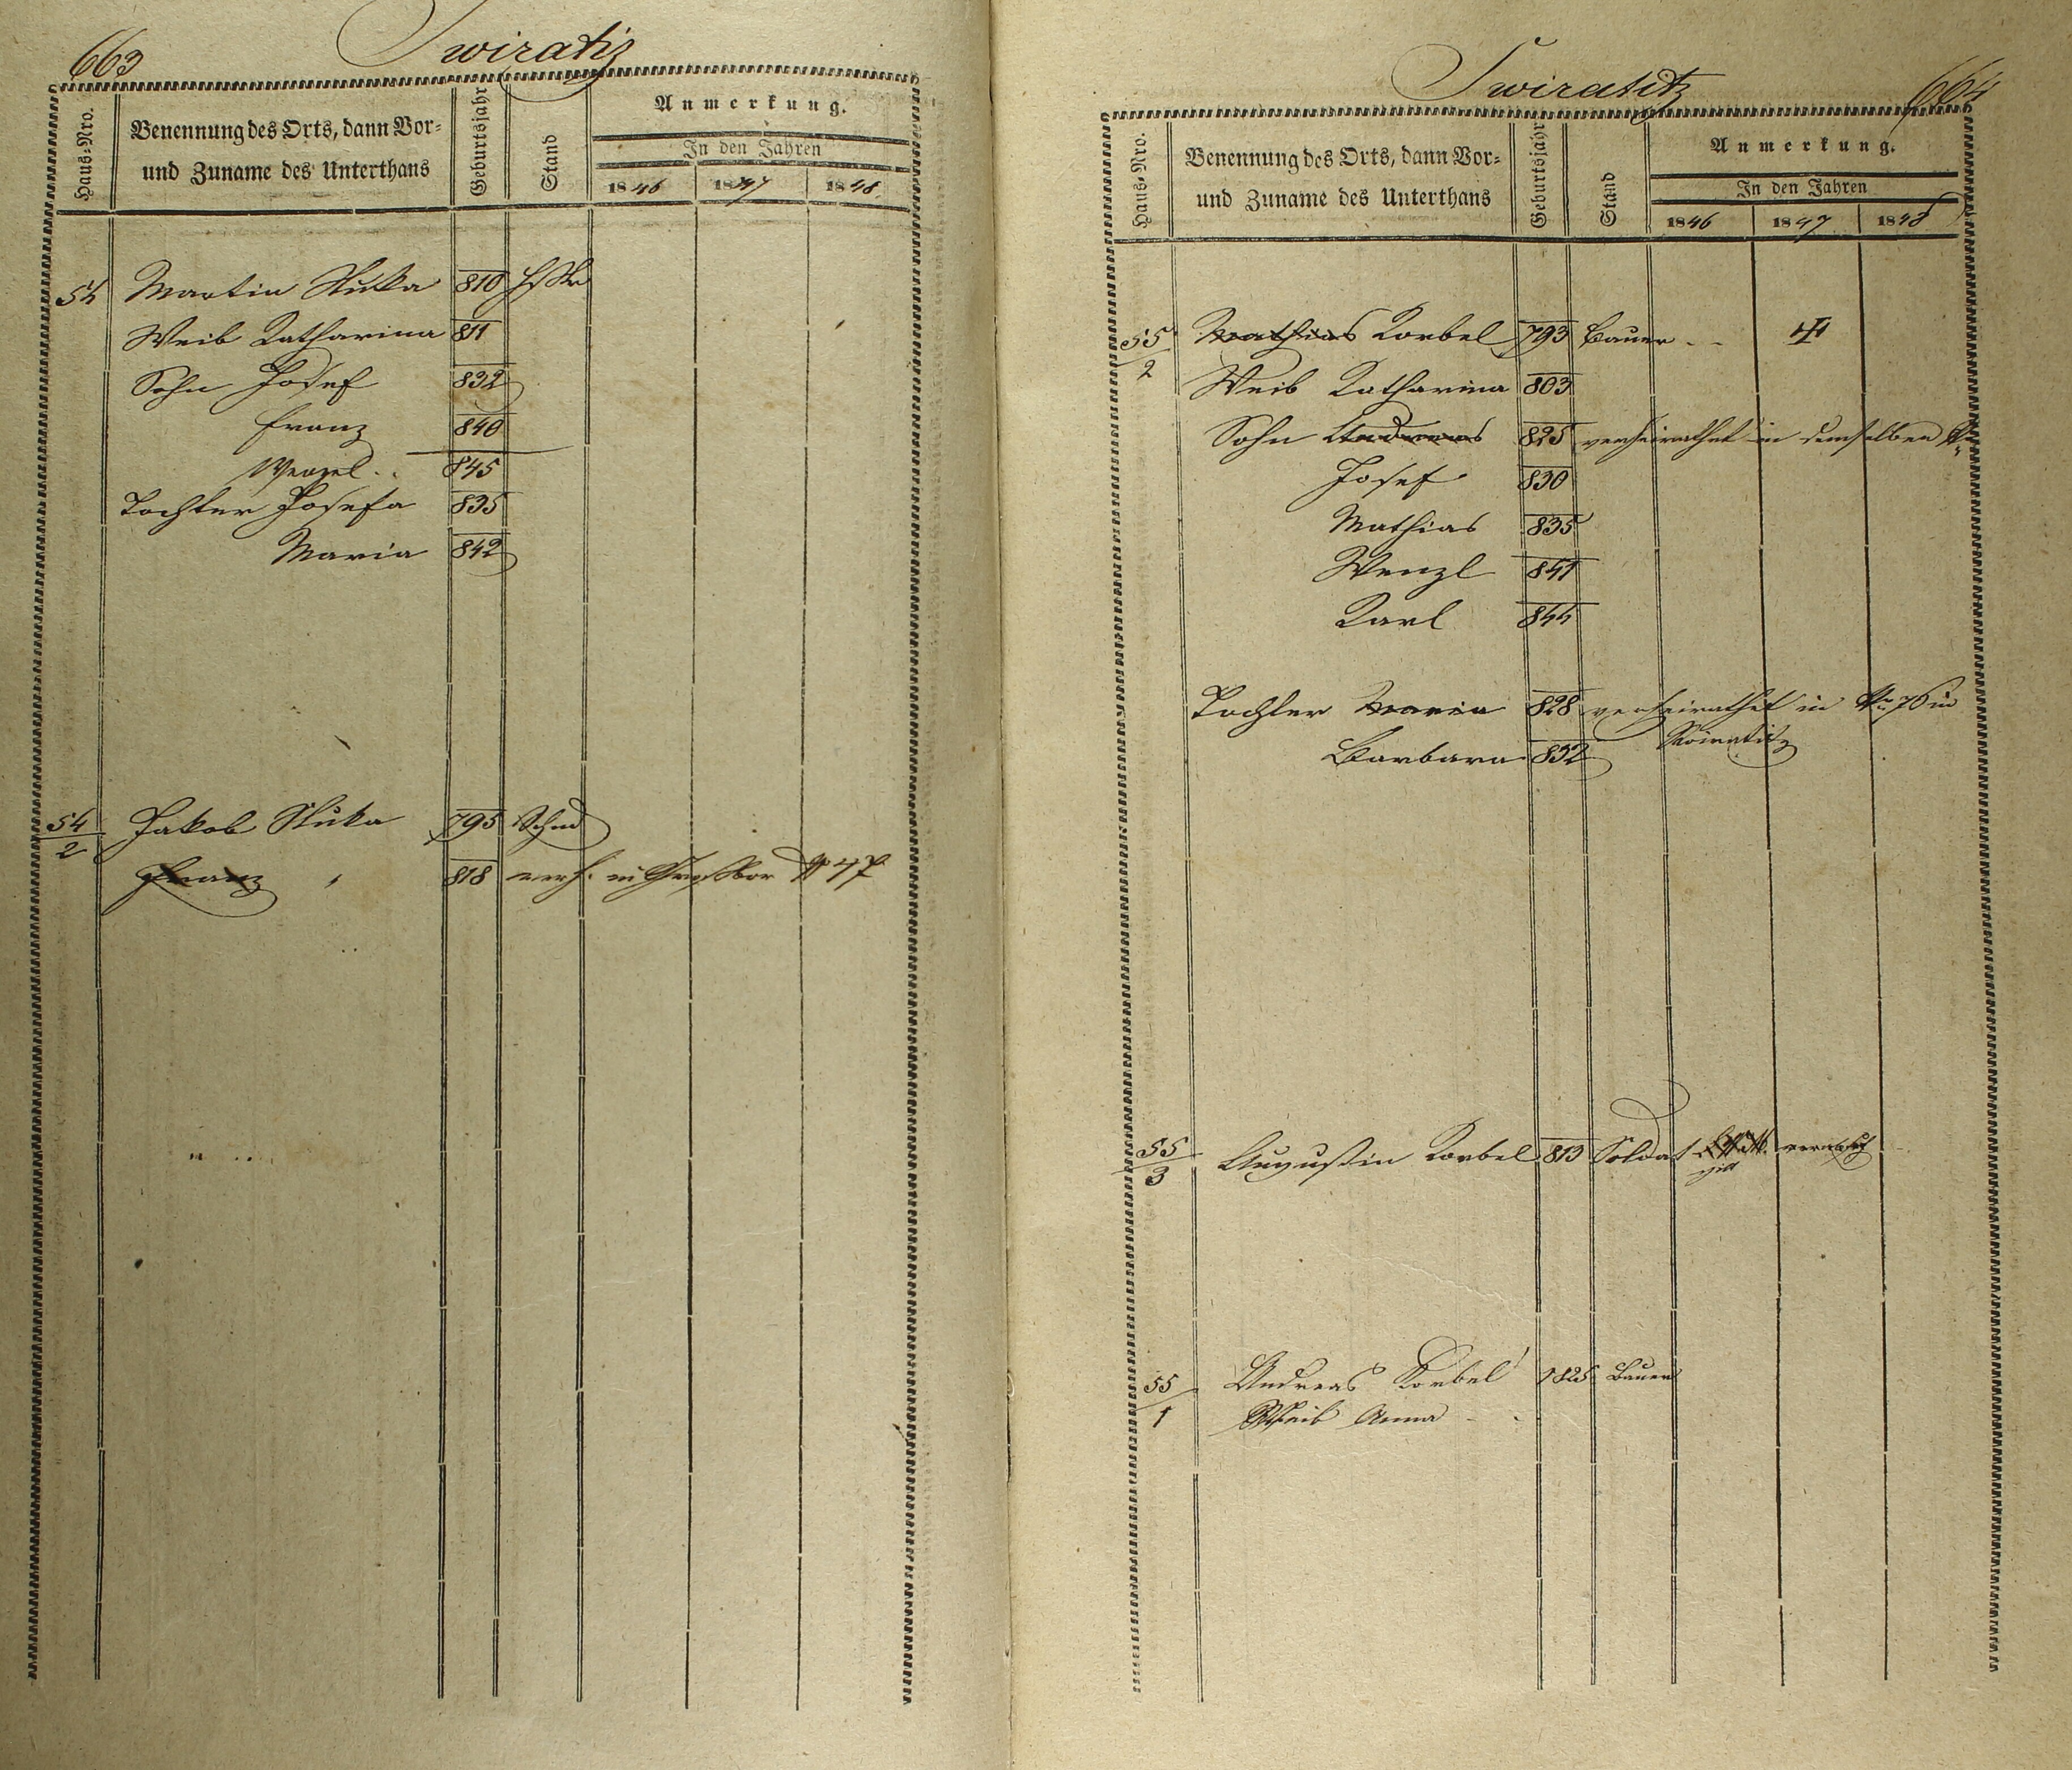 663
Swiratiz
Haus-Nro.
Benennung des Orts, dann Vor-
und Zuname des Unterthans
Geburtsjahr
Stand
Anmerkung.
In den Jahren
1846 1847 1848
54 Martin Stuka 810
Weib Katharina 811
Sohn Josef 832
Franz 840
Wenzel 845
Tochter Josefa 835
Maria 842
54/2 Jakob Stuka 795 Schmd
Franz " 818 verh. in Großbor N 47
Swiratitz
664
Haus-Nro.
Benennung des Orts, dann Vor-
und Zuname des Unterthans
Geburtsjahr
Stand
Anmerkung.
In den Jahren
1846 1847 1848
55/2 Mathias Korbel 793 Bauer - - ✝
Weib Katharina 803
Sohn Andreas 825 verheirathet in demselben N
Josef 830
Mathias 835
Wenzl 841
Karl 844
Tochter Maria 828 verheirathet in No 76 in
Swiratitz
Barbara 832
55/3 Augustin Korbel 813 Soldat
55/1 Andreas Korbel 1825 Bauer
Weib Anna - -